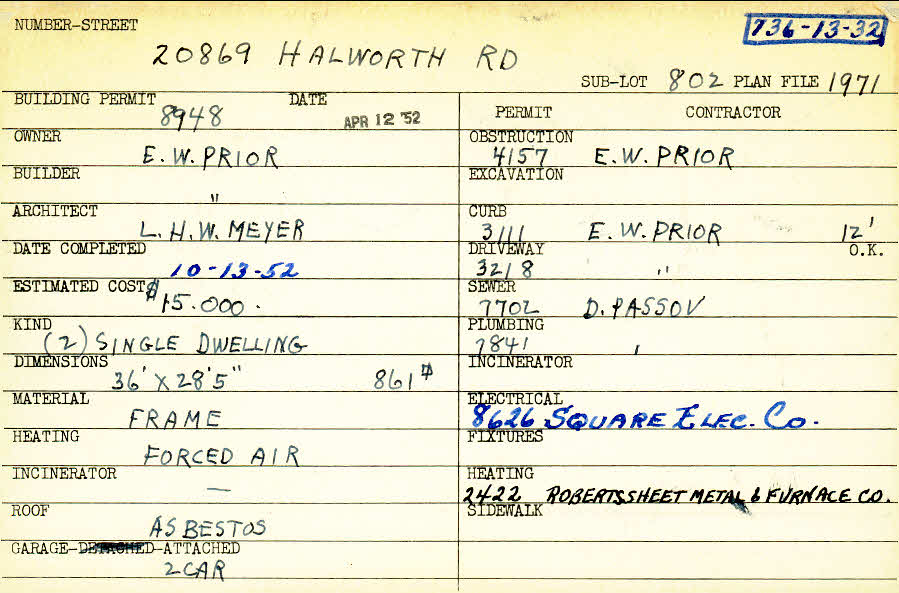 NUMBER-STREET
736-13-32
20869 HALWORTH RD
SUB-LOT 802 PLAN FILE 1971
BUILDING PERMIT DATE
8948 APR 12 '52
PERMIT CONTRACTOR
OWNER
E.W. PRIOR
OBSTRUCTION
4157 E.W. PRIOR
BUILDER
"
EXCAVATION
ARCHITECT
L.H.W. MEYER
CURB
3111 E.W. PRIOR 12'
DATE COMPLETED
10-13-52
DRIVEWAY O.K.
3218 "
ESTIMATED COST $
15.000.
SEWER
7702 D. PASSOV
KIND
(2) SINGLE DWELLING
PLUMBING
7841 "
DIMENSIONS
36' X 28'5" 861
INCINERATOR
MATERIAL
FRAME
ELECTRICAL
8626 SQUARE ELEC. CO.
HEATING
FORCED AIR
FIXTURES
INCINERATOR
—
HEATING
2422 ROBERTS SHEET METAL & FURNACE CO.
ROOF
ASBESTOS
SIDEWALK
GARAGE-DETACHED-ATTACHED
2 CAR